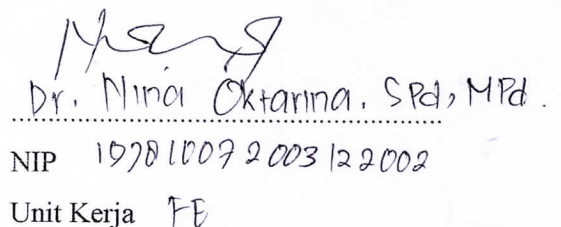 Dr. Nina Oktarina, SPd, MPd.
NIP 197810072003122002
Unit Kerja FE